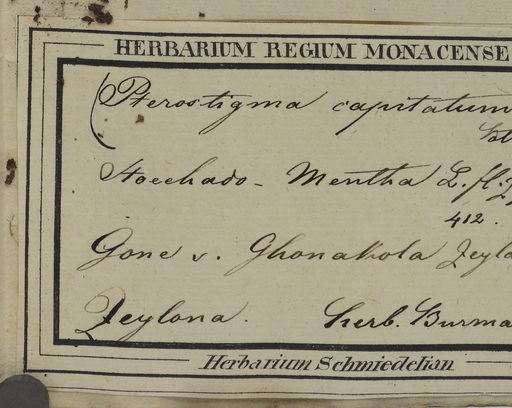 HERBARIUM REGIUM MONACENSE
(Pterostigma capitatum
Stoechado - Mentha L. fl. Z
412.
Gone v. Ghonakola Zeyla
Zeylona. herb. Burma
Herbarium Schmiedelian